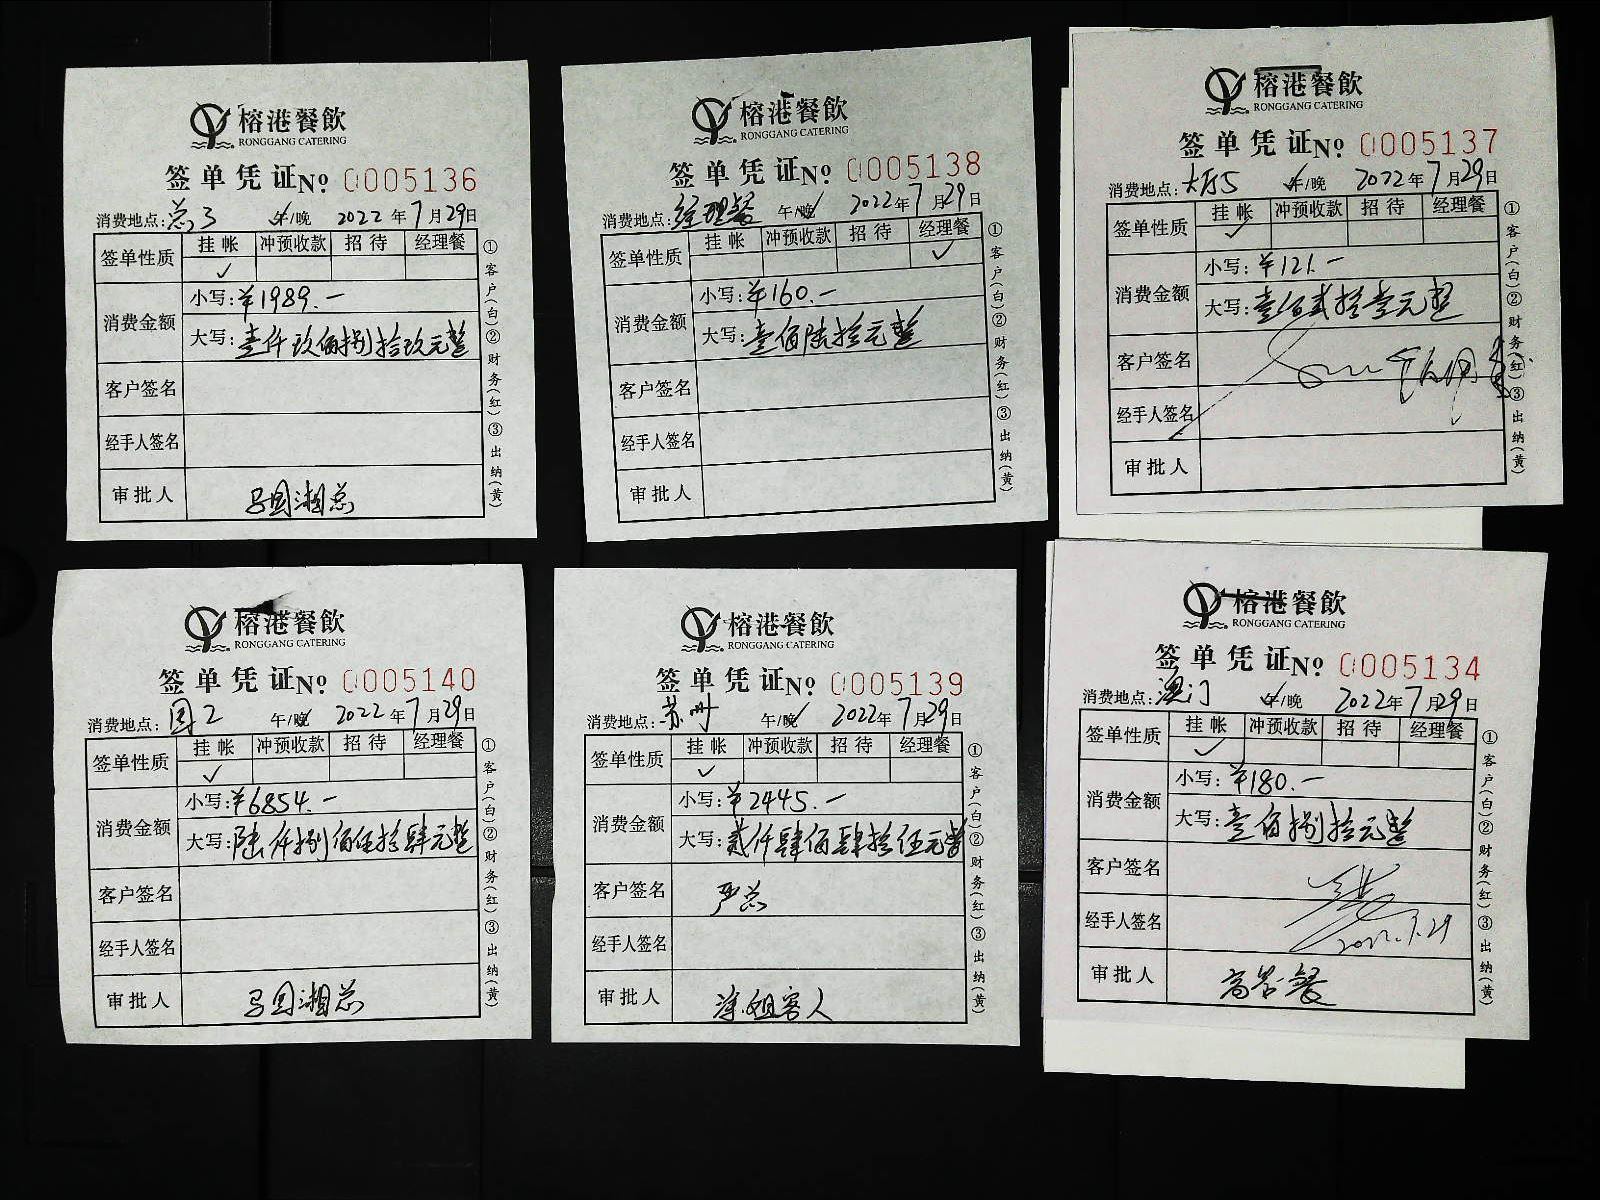 榕港餐飲
RONGGANG CATERING
签单凭证№ 0005136
消费地点: 总3 午/晚 2022年7月29日
签单性质 挂帐 冲预收款 招待 经理餐
✓
消费金额 小写:¥1989.—
大写:壹仟玖佰捌拾玖元整
客户签名
经手人签名
审批人 马国湘总
①客户(白)②财务(红)③出纳(黄)
榕港餐飲
RONGGANG CATERING
签单凭证№ 0005138
消费地点: 经理餐 午/晚 2022年7月29日
签单性质 挂帐 冲预收款 招待 经理餐
✓
消费金额 小写:¥160.—
大写:壹佰陆拾元整
客户签名
经手人签名
审批人
①客户(白)②财务(红)③出纳(黄)
榕港餐飲
RONGGANG CATERING
签单凭证№ 0005137
消费地点: 大厅5 午/晚 2022年7月29日
签单性质 挂帐 冲预收款 招待 经理餐
✓
消费金额 小写:¥121.—
大写:壹佰贰拾壹元整
客户签名
经手人签名
审批人
①客户(白)②财务(红)③出纳(黄)
榕港餐飲
RONGGANG CATERING
签单凭证№ 0005140
消费地点: 国2 午/晚 2022年7月29日
签单性质 挂帐 冲预收款 招待 经理餐
✓
消费金额 小写:¥6854.—
大写:陆仟捌佰伍拾肆元整
客户签名
经手人签名
审批人 马国湘总
①客户(白)②财务(红)③出纳(黄)
榕港餐飲
RONGGANG CATERING
签单凭证№ 0005139
消费地点: 苏州 午/晚 2022年7月29日
签单性质 挂帐 冲预收款 招待 经理餐
✓
消费金额 小写:¥2445.—
大写:贰仟肆佰肆拾伍元整
客户签名 严总
经手人签名
审批人 姐客人
①客户(白)②财务(红)③出纳(黄)
榕港餐飲
RONGGANG CATERING
签单凭证№ 0005134
消费地点: 澳门 午/晚 2022年7月29日
签单性质 挂帐 冲预收款 招待 经理餐
✓
消费金额 小写:¥180.—
大写:壹佰捌拾元整
客户签名
经手人签名 2022.7.29
审批人 高管餐
①客户(白)②财务(红)③出纳(黄)